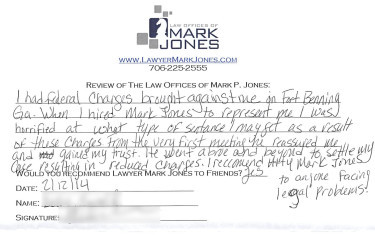 LAW OFFICES OF
MARK
JONES
WWW.LAWYERMARKJONES.COM
706-225-2555
REVIEW OF THE LAW OFFICES OF MARK P. JONES:
I had federal charges brought against me in Fort Benning
Ga. When I hired Mark Jones to represent me I was
horrified at what type of sentance I may get as a result
of these charges from the very first meeting he reassured me
and gained my trust. He went above and beyond to settle my
case resulting in reduced charges. I recommend Atty Mark Jones
WOULD YOU RECOMMEND LAWYER MARK JONES TO FRIENDS? yes
to anyone facing
DATE: 2/12/14
legal problems.
NAME:
SIGNATURE: